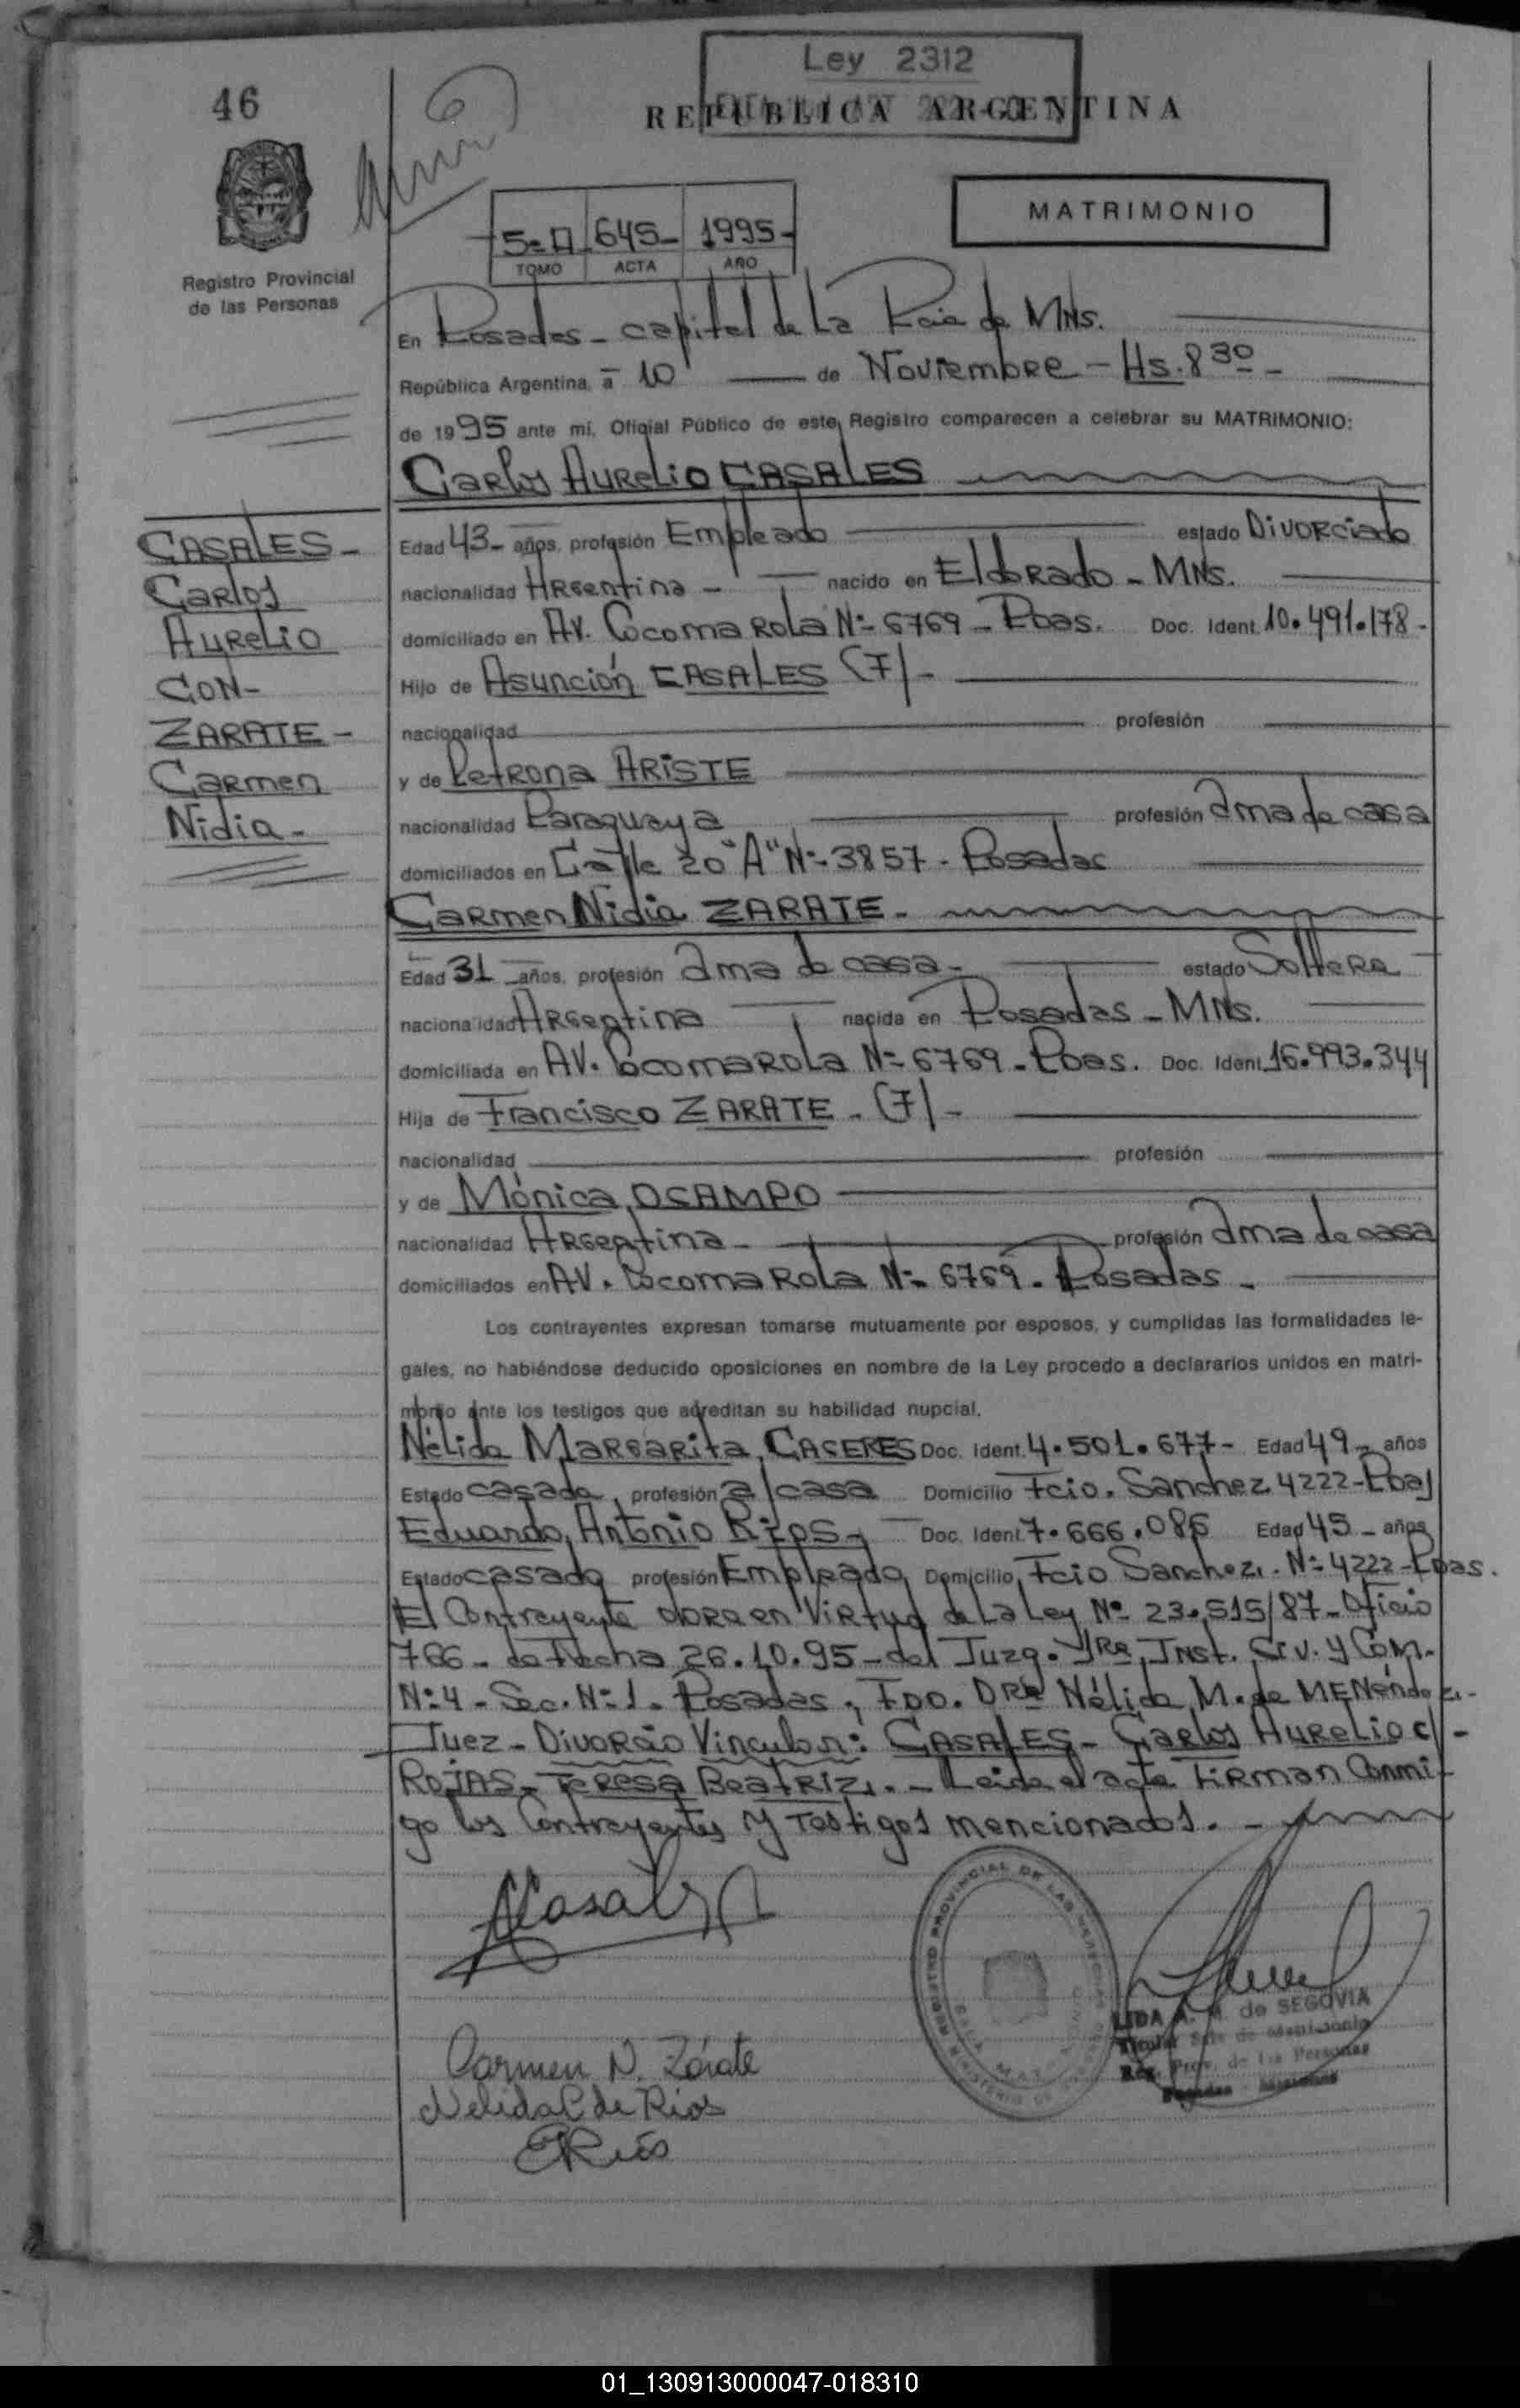 Ley 2312
46
REPUBLICA ARGENTINA
MATRIMONIO
645- 1995-
TOMO ACTA AÑO
Registro Provincial
de las Personas
En Posadas - capital de La Pcia de MNs.
República Argentina, a 10 de Noviembre - Hs. 8 30 -
de 1995 ante mí, Oficial Público de este Registro comparecen a celebrar su MATRIMONIO:
Carlos Aurelio CASALES
CASALES -
Carlos
Aurelio
CON-
ZARATE -
Carmen
Nidia -
Edad 43- años, profesión Empleado estado Divorciado
nacionalidad Argentina - nacido en Eldorado - MNs.
domiciliado en Av. Cocomarola Nº 6769 - Pdas. Doc. Ident. 10.491.178-
Hijo de Asunción CASALES (F) -
nacionalidad profesión
y de Petrona ARISTE
nacionalidad Paraguaya profesión ama de casa
domiciliados en Calle 20 "A" Nº 3857 - Posadas
Carmen Nidia ZARATE -
Edad 31 años, profesión ama de casa - estado Soltera
nacionalidad Argentina nacida en Posadas - MNs.
domiciliada en AV. Cocomarola Nº 6769 - Pdas. Doc. Ident. 16.993.344
Hija de Francisco ZARATE - (F) -
nacionalidad profesión
y de Mónica OCAMPO
nacionalidad Argentina - profesión ama de casa
domiciliados en AV. Cocomarola Nº 6769 - Posadas -
Los contrayentes expresan tomarse mutuamente por esposos, y cumplidas las formalidades le-
gales, no habiéndose deducido oposiciones en nombre de la Ley procedo a declararlos unidos en matri-
monio ante los testigos que acreditan su habilidad nupcial.
Nélida Margarita CACERES Doc. Ident. 4.501.677- Edad 49- años
Estado casada, profesión a/casa Domicilio Fcio. Sanchez 4222-Pdas
Eduardo Antonio Rios - Doc. Ident 7.666.086 Edad 45- años
Estado casado profesión Empleado Domicilio Fcio Sanchez. Nº 4222-Pdas.
El Contrayente obra en Virtud de La Ley Nº 23.515/87 - Oficio
766 - de fecha 26.10.95 - del Juzg. 1ra Inst. Civ. y Com.
Nº 4 - Sec. Nº 1 - Posadas, FDO. DRa Nélida M. de MENéndez -
Juez - Divorcio Vincular: CASALES - Carlos Aurelio c/-
ROJAS - Teresa Beatriz. - Leida el acta firman Conmi-
go los Contrayentes y Testigos mencionados. -
Carmen N. Zárate
Nelida C de Rios
ERios
REGISTRO PROVINCIAL DE LAS PERSONAS
LIDA A. M. de SEGOVIA
Titular de Matrimonio
Reg. Prov. de las Personas
Posadas - Misiones
01_130913000047-018310